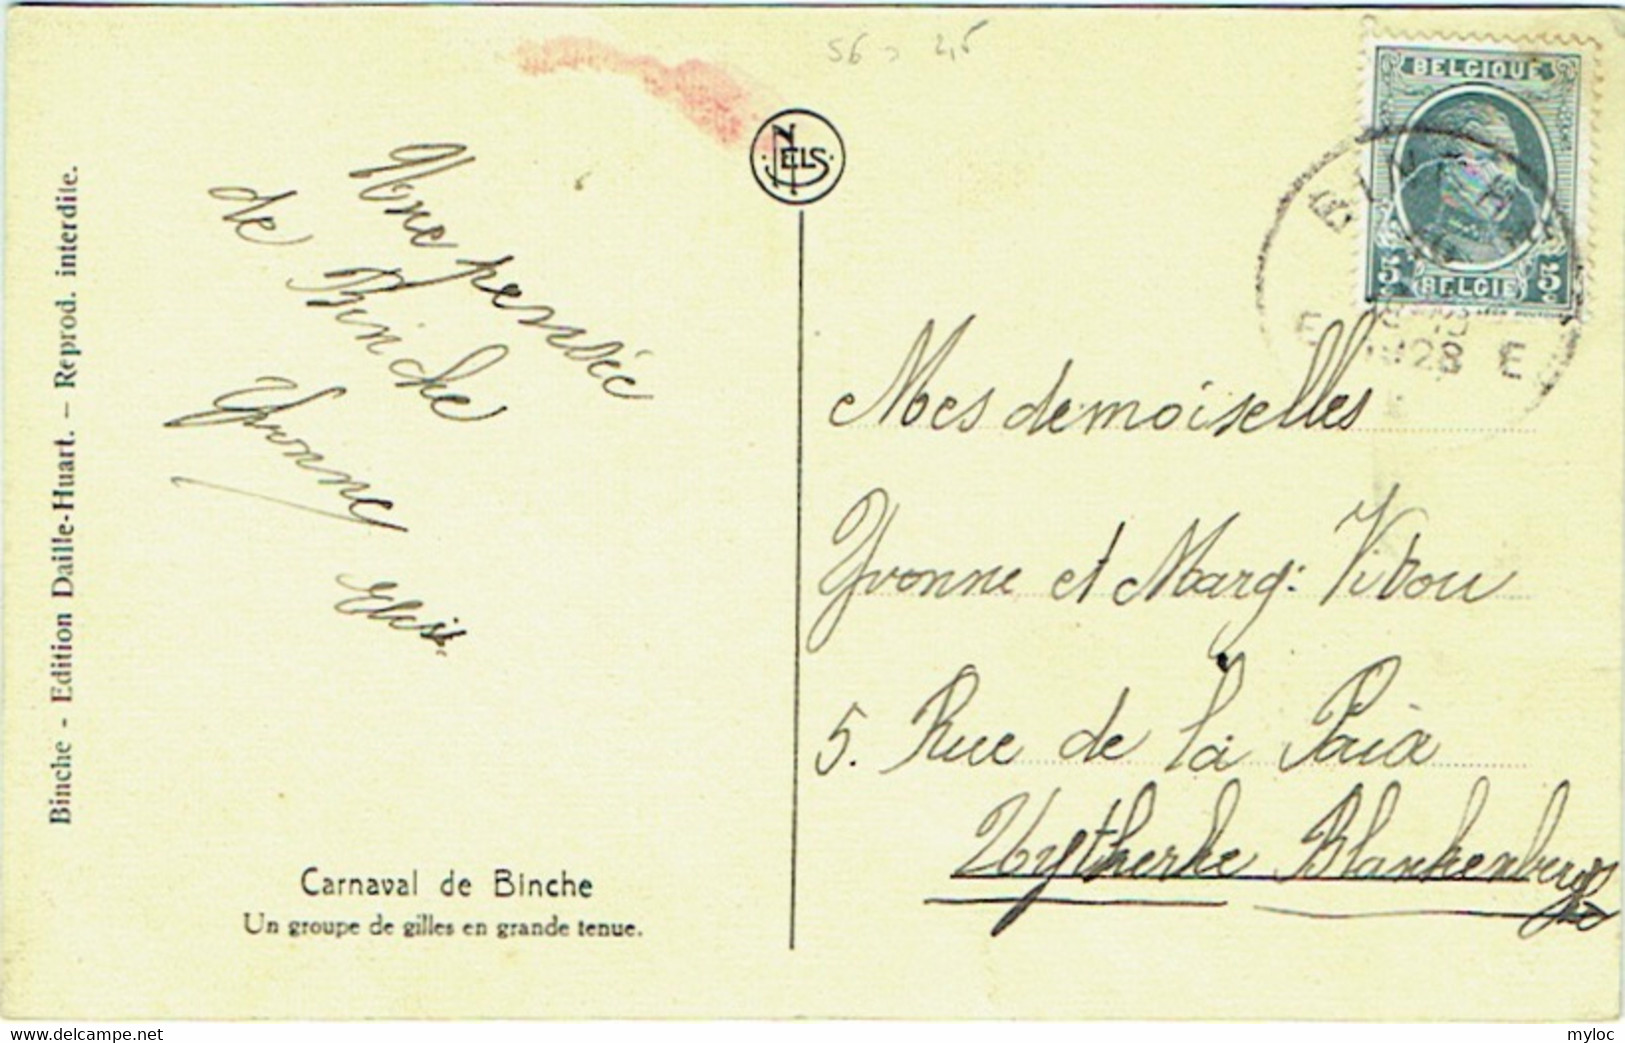 Binche - Edition Daille-Huart. – Reprod. interdite.
56 2,5
NELS
Une pensée
de Binche
Yvonne
BELGIQUE
5 5
(BELGIE)
BINCHE
1928
E E
Mesdemoiselles
Yvonne et Marg: Vitou
5. Rue de la Paix
Uytkerke Blankenberge
Carnaval de Binche
Un groupe de gilles en grande tenue.
myloc
Delcampe.net